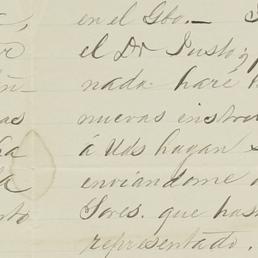 en el Gbo.—
el Dr Justo y
nada haré
nuevas instru
á Uds hagan
enviándome
Sores. que has
representado.